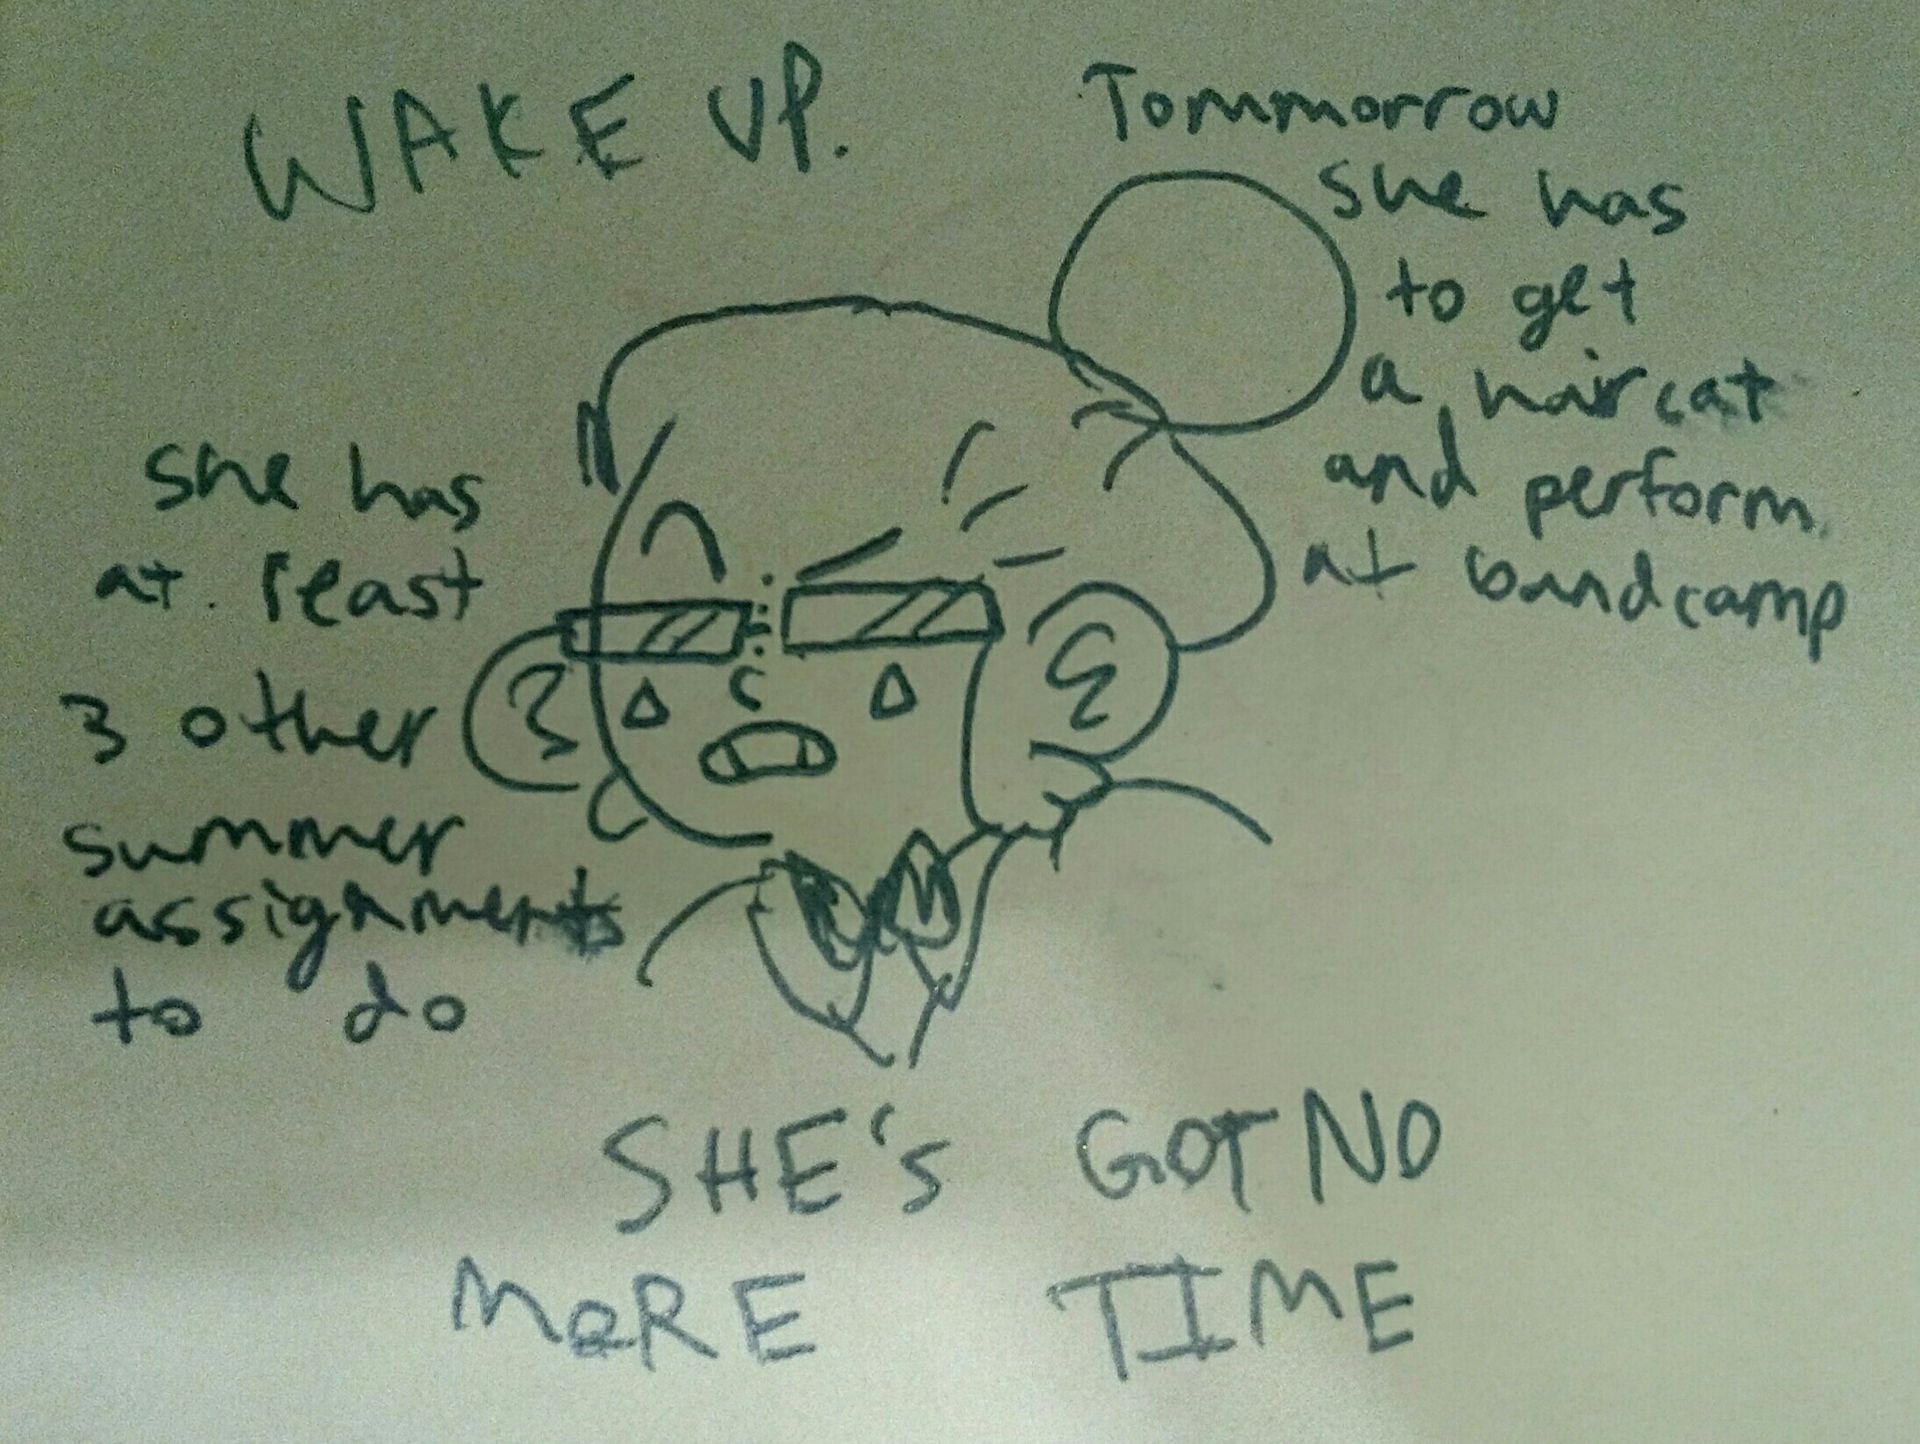 WAKE UP.
Tommorrow
she has
to get
a haircat
and perform
at bandcamp
she has
at least
3 other
summer
assignments
to do
SHE'S GOT NO
MORE TIME